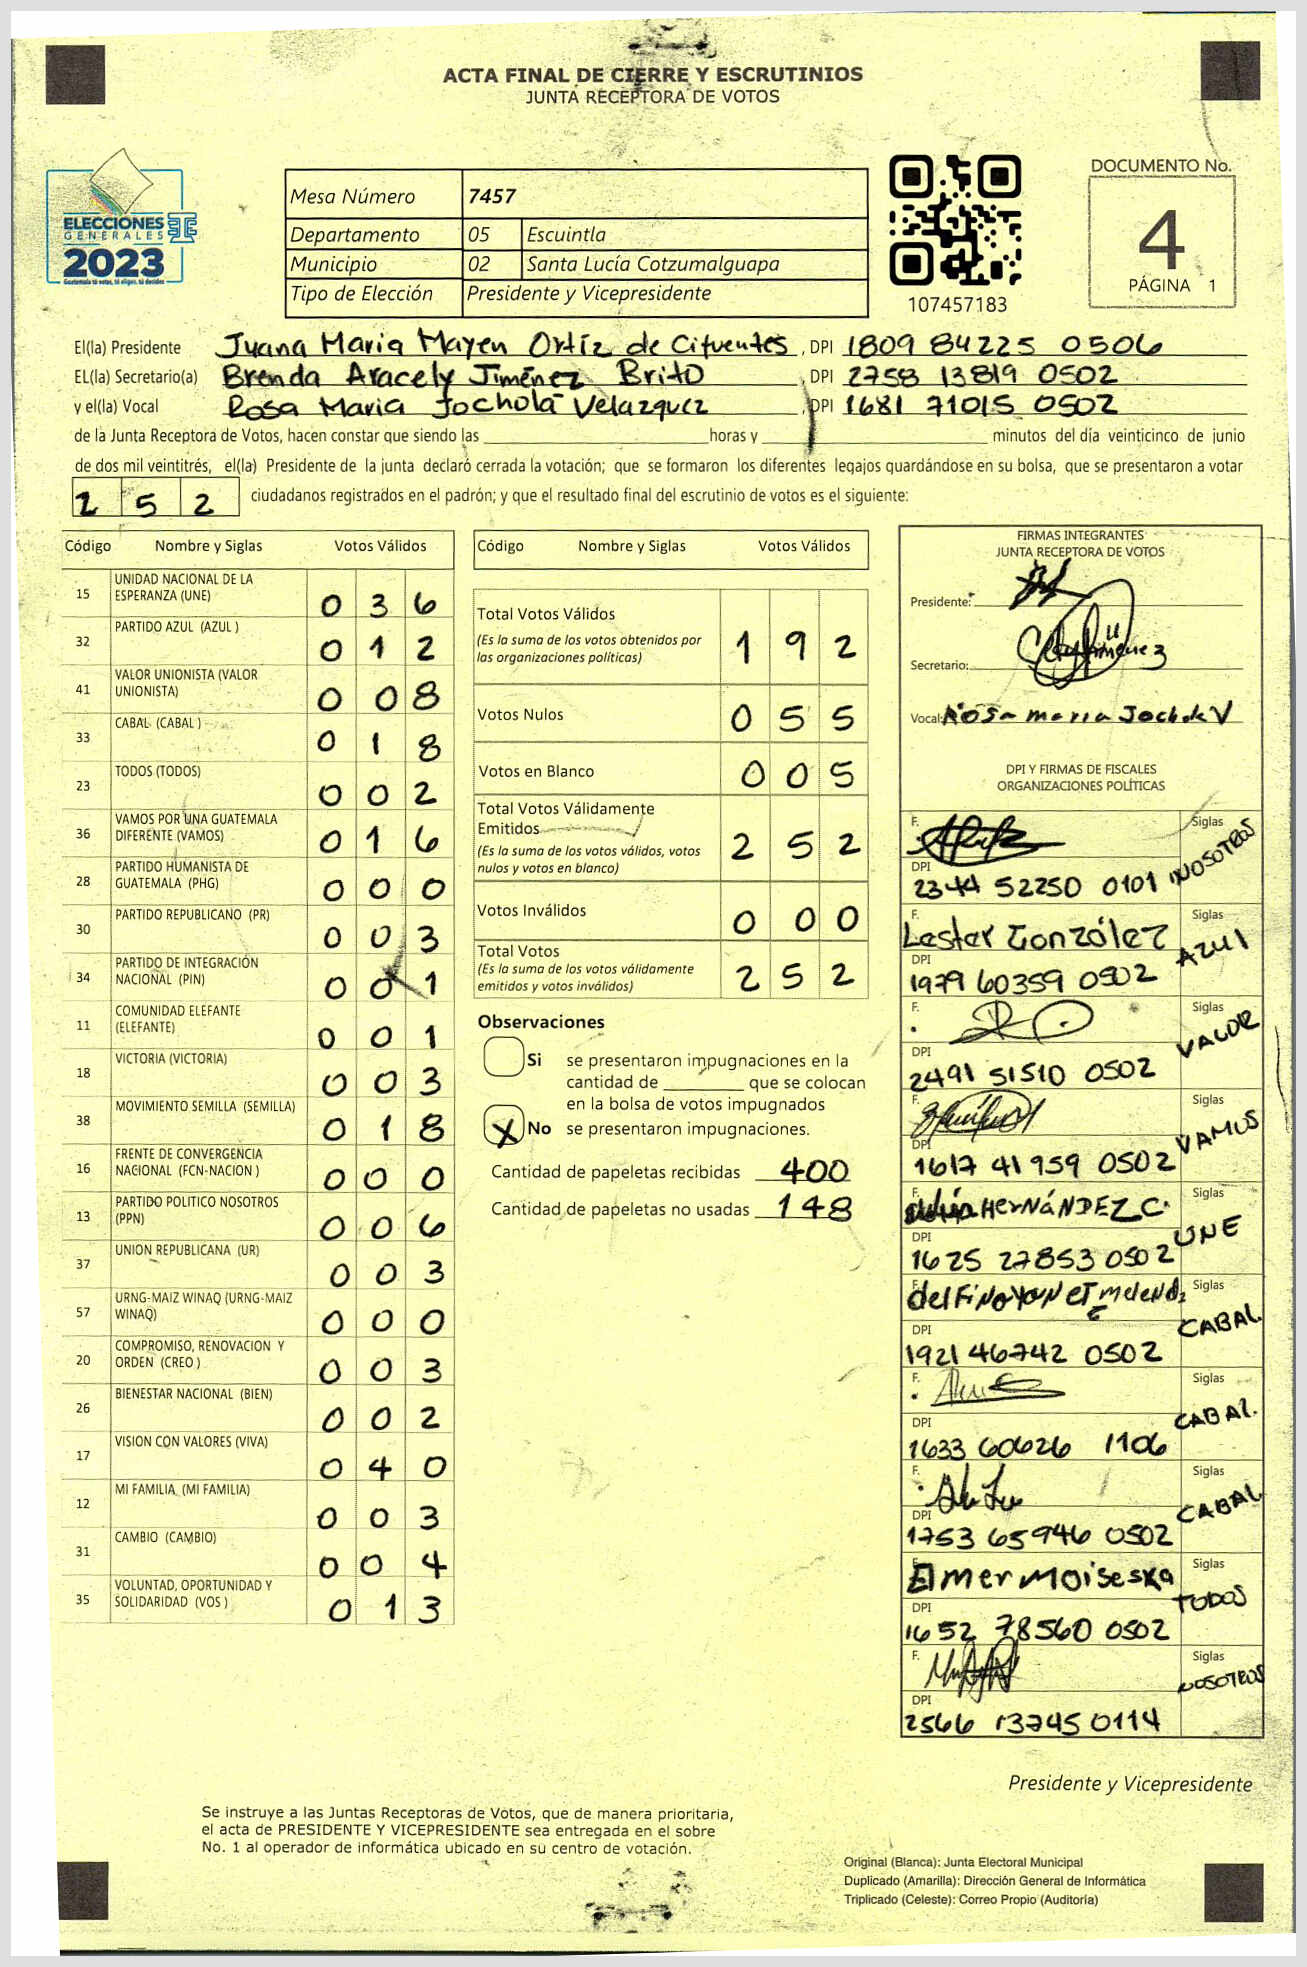 ACTA FINAL DE CIERRE Y ESCRUTINIOS
JUNTA RECEPTORA DE VOTOS
ELECCIONES
GENERALES
2023
Guatemala tú votas, tú eliges, tú decides
Mesa Número 7457
Departamento 05 Escuintla
Municipio 02 Santa Lucía Cotzumalguapa
Tipo de Elección Presidente y Vicepresidente
107457183
DOCUMENTO No.
4
PÁGINA 1
El(la) Presidente Juana Maria Mayen Ortíz de Cifuentes, DPI 1809 84225 0506
EL(la) Secretario(a) Brenda Aracely Jiménez Brito, DPI 2758 13819 0502
y el(la) Vocal Rosa Maria Jocholá Velazquez, DPI 1681 71015 0502
de la Junta Receptora de Votos, hacen constar que siendo las horas y minutos del día veinticinco de junio
de dos mil veintitrés, el(la) Presidente de la junta declaró cerrada la votación; que se formaron los diferentes legajos guardándose en su bolsa, que se presentaron a votar
2 5 2 ciudadanos registrados en el padrón; y que el resultado final del escrutinio de votos es el siguiente:
Código Nombre y Siglas Votos Válidos
15 UNIDAD NACIONAL DE LA
ESPERANZA (UNE) 0 3 6
32 PARTIDO AZUL (AZUL ) 0 1 2
41 VALOR UNIONISTA (VALOR
UNIONISTA) 0 0 8
33 CABAL (CABAL ) 0 1 8
23 TODOS (TODOS) 0 0 2
36 VAMOS POR UNA GUATEMALA
DIFERENTE (VAMOS) 0 1 6
28 PARTIDO HUMANISTA DE
GUATEMALA (PHG) 0 0 0
30 PARTIDO REPUBLICANO (PR) 0 0 3
34 PARTIDO DE INTEGRACIÓN
NACIONAL (PIN) 0 0 1
11 COMUNIDAD ELEFANTE
(ELEFANTE) 0 0 1
18 VICTORIA (VICTORIA) 0 0 3
38 MOVIMIENTO SEMILLA (SEMILLA) 0 1 8
16 FRENTE DE CONVERGENCIA
NACIONAL (FCN-NACION ) 0 0 0
13 PARTIDO POLITICO NOSOTROS
(PPN) 0 0 6
37 UNION REPUBLICANA (UR) 0 0 3
57 URNG-MAIZ WINAQ (URNG-MAIZ
WINAQ) 0 0 0
20 COMPROMISO, RENOVACION Y
ORDEN (CREO ) 0 0 3
26 BIENESTAR NACIONAL (BIEN) 0 0 2
17 VISION CON VALORES (VIVA) 0 4 0
12 MI FAMILIA (MI FAMILIA) 0 0 3
31 CAMBIO (CAMBIO) 0 0 4
35 VOLUNTAD, OPORTUNIDAD Y
SOLIDARIDAD (VOS ) 0 1 3
Código Nombre y Siglas Votos Válidos
Total Votos Válidos
(Es la suma de los votos obtenidos por
las organizaciones políticas) 1 9 2
Votos Nulos 0 5 5
Votos en Blanco 0 0 5
Total Votos Válidamente
Emitidos
(Es la suma de los votos válidos, votos
nulos y votos en blanco) 2 5 2
Votos Inválidos 0 0 0
Total Votos
(Es la suma de los votos válidamente
emitidos y votos inválidos) 2 5 2
Observaciones
Si se presentaron impugnaciones en la
cantidad de que se colocan
en la bolsa de votos impugnados
X No se presentaron impugnaciones.
Cantidad de papeletas recibidas 400
Cantidad de papeletas no usadas 148
FIRMAS INTEGRANTES
JUNTA RECEPTORA DE VOTOS
Presidente:
Secretario:
Vocal: Rosa maria Jochola V
DPI Y FIRMAS DE FISCALES
ORGANIZACIONES POLÍTICAS
F. Siglas
DPI NOSOTROS
2344 52250 0101
F. Lester González Siglas
DPI AZUL
1979 60359 0502
F. Siglas
DPI VALOR
2491 51510 0502
F. Siglas
DPI VAMOS
1617 41959 0502
F. HERNÁNDEZ C. Siglas
DPI UNE
1625 27853 0502
F. Siglas
DPI CABAL
1921 46742 0502
F. Siglas
DPI CABAL
1633 60626 1106
F. Siglas
DPI CABAL
1753 65946 0502
F. Elmer Moises Siglas
DPI TODOS
1652 78560 0502
F. Siglas
DPI NOSOTROS
2566 13745 0114
Presidente y Vicepresidente
Se instruye a las Juntas Receptoras de Votos, que de manera prioritaria,
el acta de PRESIDENTE Y VICEPRESIDENTE sea entregada en el sobre
No. 1 al operador de informática ubicado en su centro de votación.
Original (Blanca): Junta Electoral Municipal
Duplicado (Amarilla): Dirección General de Informática
Triplicado (Celeste): Correo Propio (Auditoría)